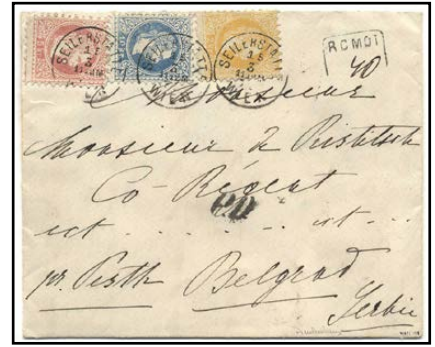 SEILERSTÄTTE SEILERSTÄTTE SEILERSTÄTTE
WIEN WIEN WIEN
RCMDT
40
Monsieur
Monsieur de Ristitsch
Co-Régent
PD
ect . . . ect . . .
pr. Pesth Belgrad
Serbie